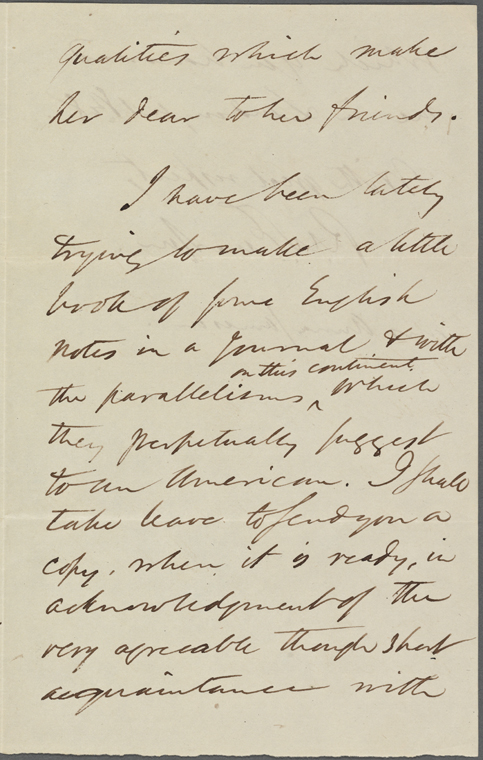 qualities which make
her dear to her friends.
I have been lately
trying to make a little
book of some English
notes in a Journal & with
on this continent,
the parallelisms ^ which
they perpetually suggest
to an American. I shall
take leave to send you a
copy, when it is ready, in
acknowledgment of the
very agreeable though short
acquaintance with